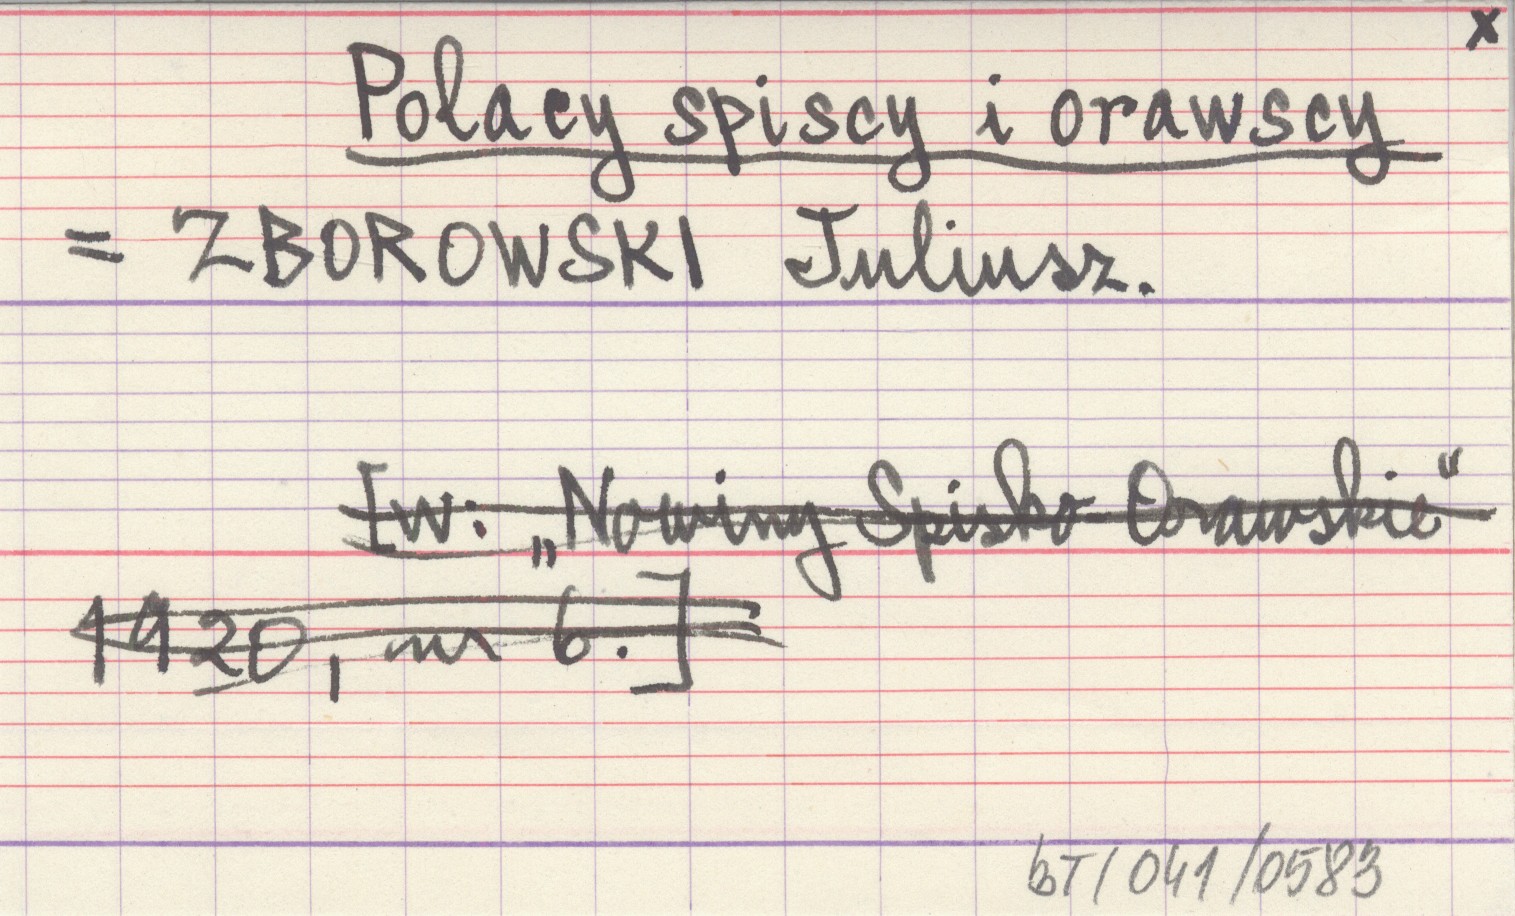 x
Polacy spiscy i orawscy
= ZBOROWSKI Juliusz.
[w: „Nowiny Spisko Orawskie“
1920, nr 6.]
bT/041/0583